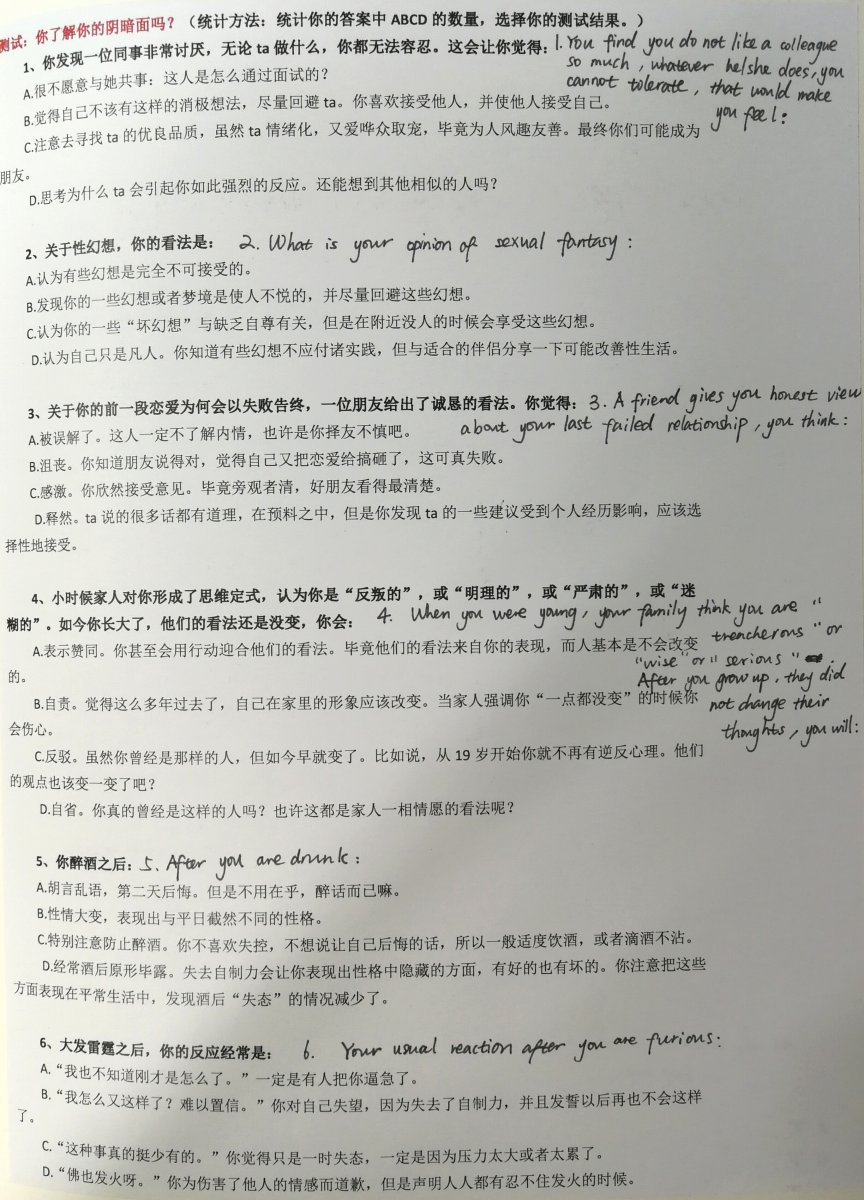 测试：你了解你的阴暗面吗？（统计方法：统计你的答案中 ABCD 的数量，选择你的测试结果。）
1、你发现一位同事非常讨厌，无论 ta 做什么，你都无法容忍。这会让你觉得：
1. You find you do not like a colleague
so much, whatever he/she does, you
cannot tolerate, that would make
you feel:
A.很不愿意与她共事：这人是怎么通过面试的？
B.觉得自己不该有这样的消极想法，尽量回避 ta。你喜欢接受他人，并使他人接受自己。
C.注意去寻找 ta 的优良品质，虽然 ta 情绪化，又爱哗众取宠，毕竟为人风趣友善。最终你们可能成为
朋友。
D.思考为什么 ta 会引起你如此强烈的反应。还能想到其他相似的人吗？
2、关于性幻想，你的看法是： 2. What is your opinion of sexual fantasy:
A.认为有些幻想是完全不可接受的。
B.发现你的一些幻想或者梦境是使人不悦的，并尽量回避这些幻想。
C.认为你的一些“坏幻想”与缺乏自尊有关，但是在附近没人的时候会享受这些幻想。
D.认为自己只是凡人。你知道有些幻想不应付诸实践，但与适合的伴侣分享一下可能改善性生活。
3、关于你的前一段恋爱为何会以失败告终，一位朋友给出了诚恳的看法。你觉得：
3. A friend gives you honest view
about your last failed relationship, you think:
A.被误解了。这人一定不了解内情，也许是你择友不慎吧。
B.沮丧。你知道朋友说得对，觉得自己又把恋爱给搞砸了，这可真失败。
C.感激。你欣然接受意见。毕竟旁观者清，好朋友看得最清楚。
D.释然。ta 说的很多话都有道理，在预料之中，但是你发现 ta 的一些建议受到个人经历影响，应该选
择性地接受。
4、小时候家人对你形成了思维定式，认为你是“反叛的”，或“明理的”，或“严肃的”，或“迷
糊的”。如今你长大了，他们的看法还是没变，你会：
4. When you were young, your family think you are "
treacherous" or
"wise" or "serious".
After you grow up, they did
not change their
thoughts, you will:
A.表示赞同。你甚至会用行动迎合他们的看法。毕竟他们的看法来自你的表现，而人基本是不会改变
的。
B.自责。觉得这么多年过去了，自己在家里的形象应该改变。当家人强调你“一点都没变”的时候你
会伤心。
C.反驳。虽然你曾经是那样的人，但如今早就变了。比如说，从 19 岁开始你就不再有逆反心理。他们
的观点也该变一变了吧？
D.自省。你真的曾经是这样的人吗？也许这都是家人一相情愿的看法呢？
5、你醉酒之后： 5、After you are drunk:
A.胡言乱语，第二天后悔。但是不用在乎，醉话而已嘛。
B.性情大变，表现出与平日截然不同的性格。
C.特别注意防止醉酒。你不喜欢失控，不想说让自己后悔的话，所以一般适度饮酒，或者滴酒不沾。
D.经常酒后原形毕露。失去自制力会让你表现出性格中隐藏的方面，有好的也有坏的。你注意把这些
方面表现在平常生活中，发现酒后“失态”的情况减少了。
6、大发雷霆之后，你的反应经常是： 6. Your usual reaction after you are furious:
A.“我也不知道刚才是怎么了。”一定是有人把你逼急了。
B.“我怎么又这样了？难以置信。”你对自己失望，因为失去了自制力，并且发誓以后再也不会这样
了。
C.“这种事真的挺少有的。”你觉得只是一时失态，一定是因为压力太大或者太累了。
D.“佛也发火呀。”你为伤害了他人的情感而道歉，但是声明人人都有忍不住发火的时候。